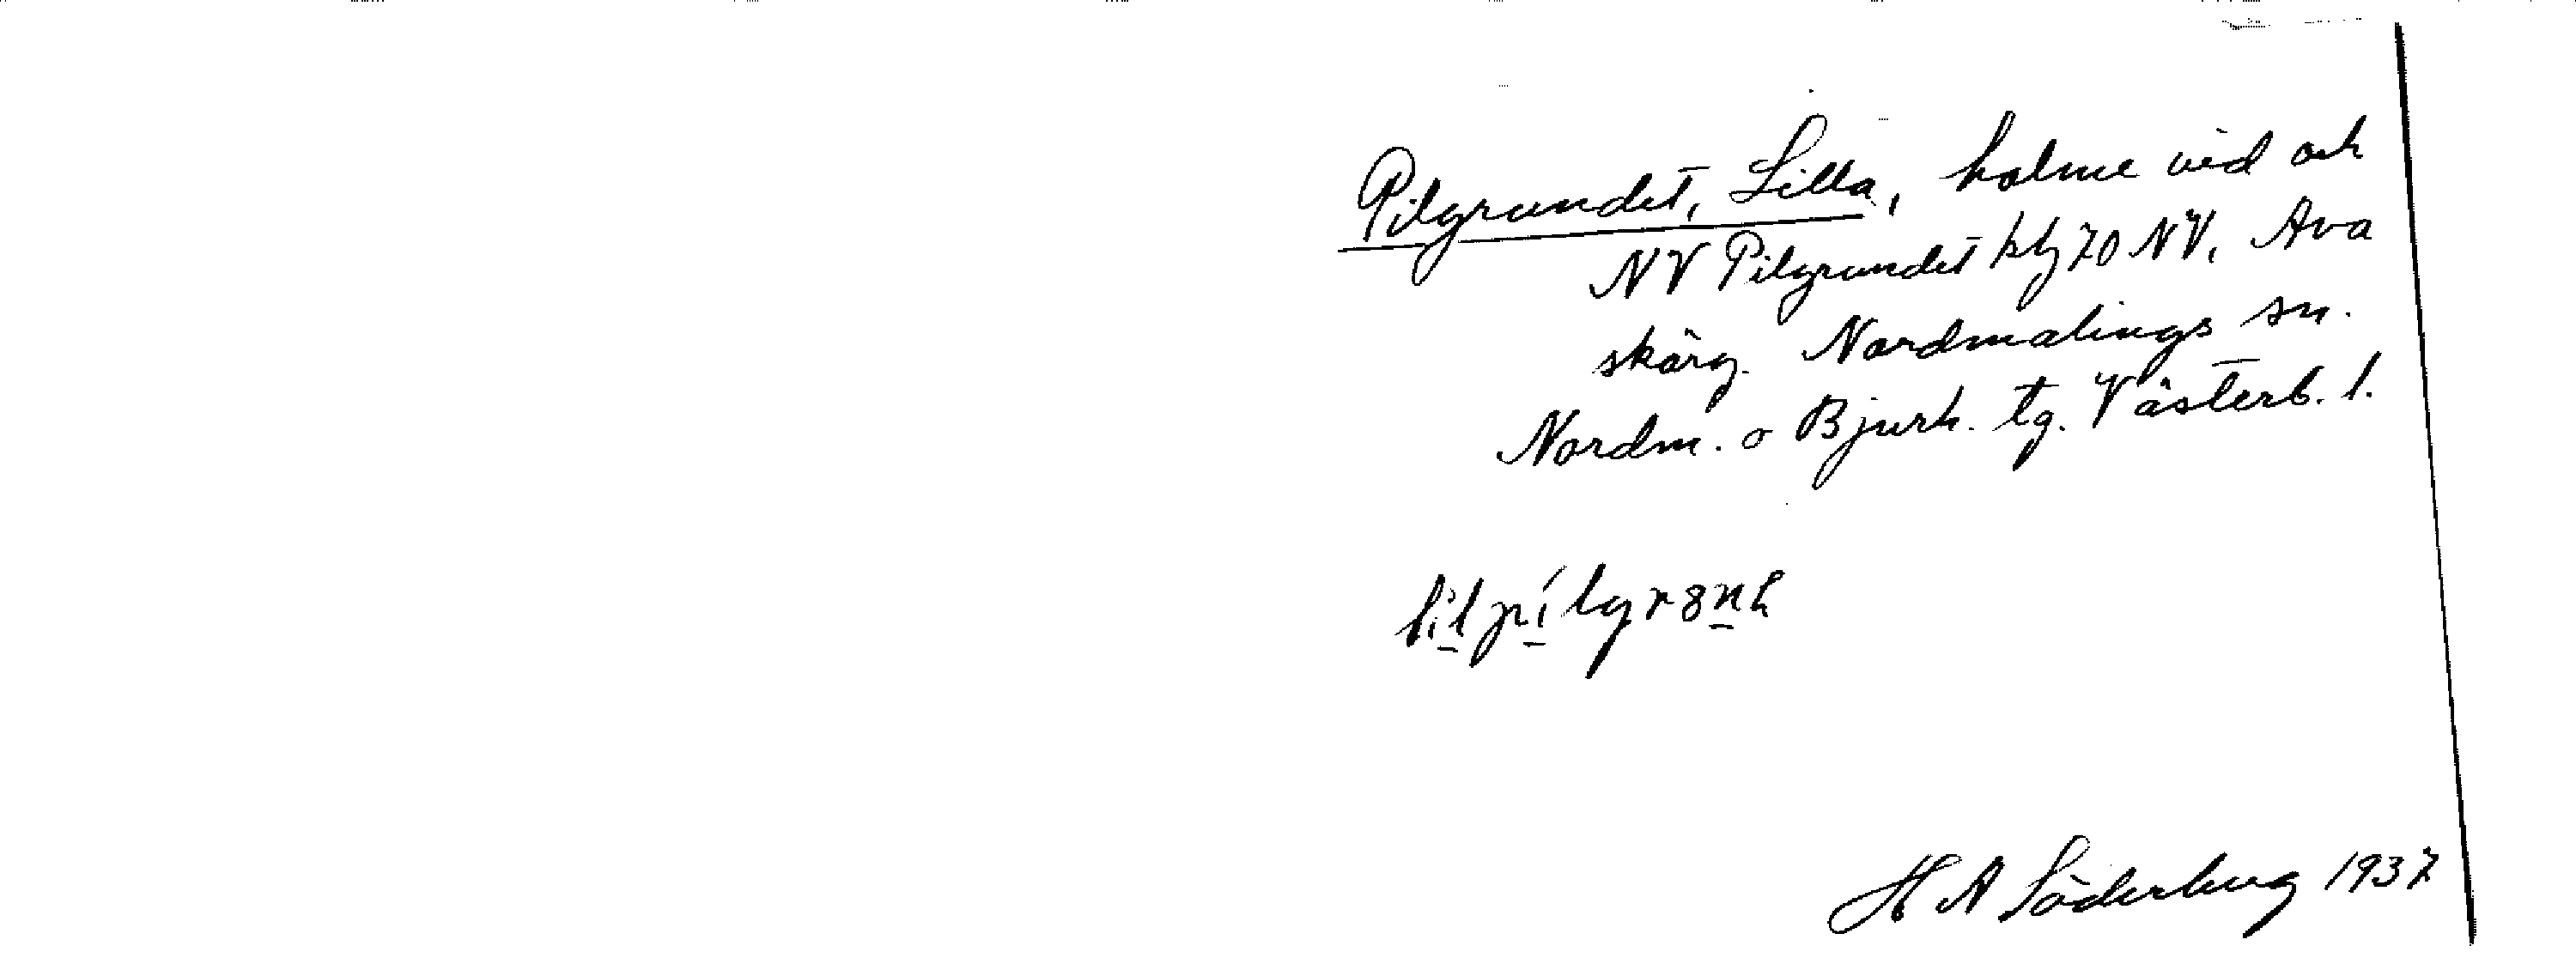 Pilgrundet, Lilla, holme vid och
NV Pilgrundet kbl 70 NV, Ava
skärg. Nordmalings sn.
Nordm. o Bjurh. tg. Västerb. l.
H A Söderberg 1937